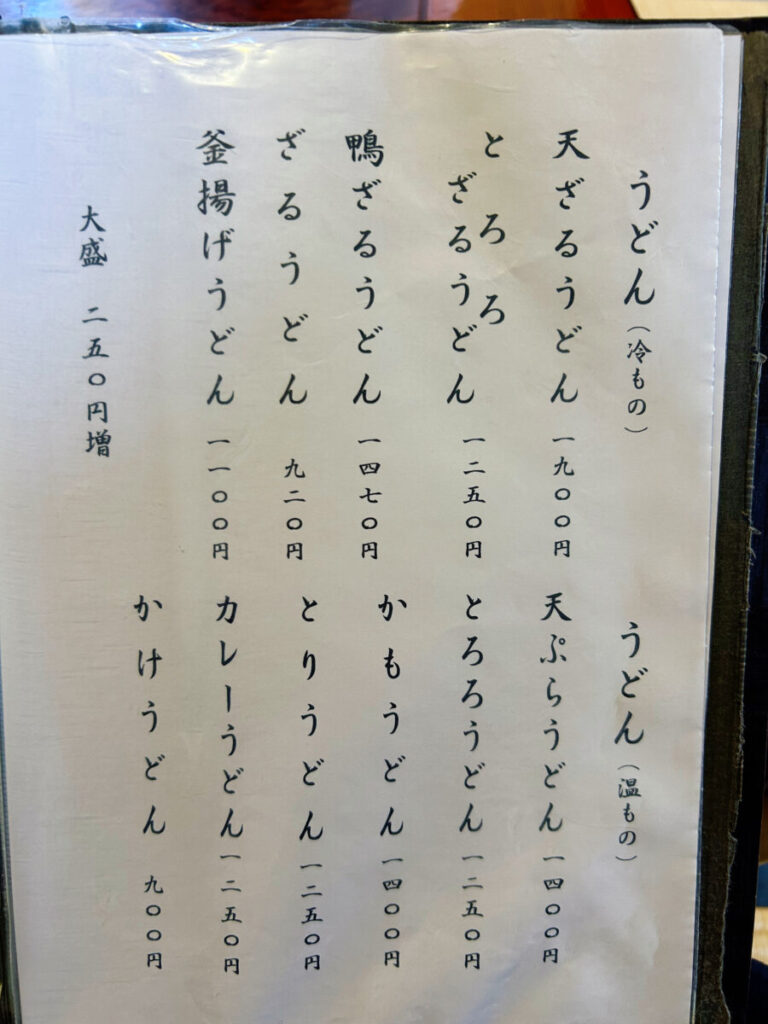 うどん（冷もの）
天ざるうどん 一九〇〇円
とろろざるうどん 一二五〇円
鴨ざるうどん 一四七〇円
ざるうどん 九二〇円
釜揚げうどん 一一〇〇円
大盛 二五〇円増
うどん（温もの）
天ぷらうどん 一四〇〇円
とろろうどん 一二五〇円
かもうどん 一四〇〇円
とりうどん 一二五〇円
カレーうどん 一二五〇円
かけうどん 九〇〇円